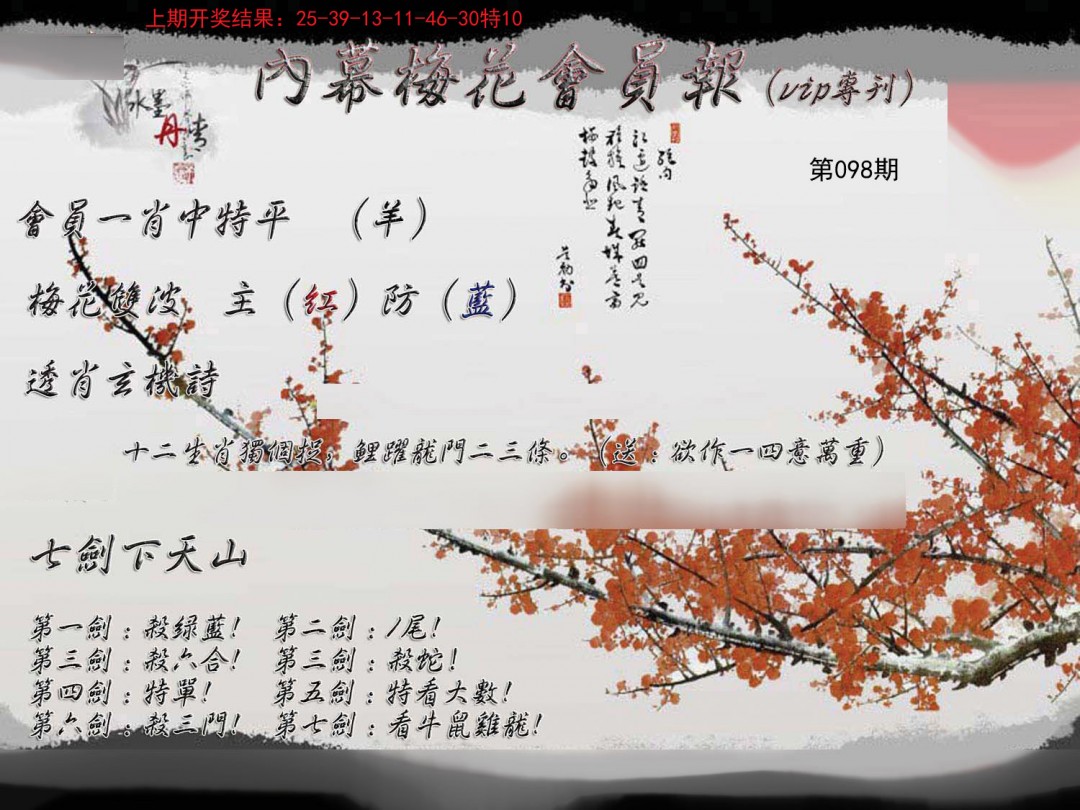 上期开奖结果：25-39-13-11-46-30特10
內幕梅花會員報（vip專刊）
水墨丹青
第098期
會員一肖中特平 （羊）
梅花雙波 主（紅）防（藍）
透肖玄機詩
十二生肖獨個捉，鯉躍龍門二三條。（送：欲作一四意萬重）
七劍下天山
第一劍：殺绿藍！ 第二劍：/尾！
第三劍：殺六合！ 第三劍：殺蛇！
第四劍：特單！ 第五劍：特看大數！
第六劍：殺三門！ 第七劍：看牛鼠雞龍！